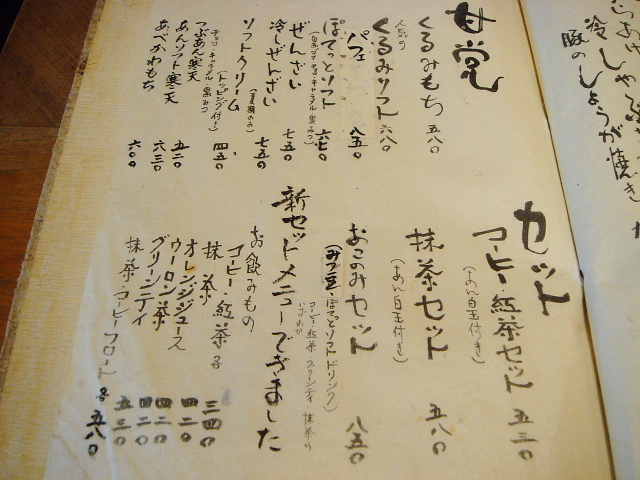 甘党
くるみもち 五八〇
人気の
くるみソフト 六八〇
パフェ 八五〇
ぽてっとソフト 六七〇
ぜんざい 七五〇
冷しぜんざい 七五〇
(夏期のみ)
ソフトクリーム 四五〇
(トッピング付き)
チョコ・キャラメル 黒みつ
つぶあん寒天 五二〇
あんソフト寒天 六三〇
あべかわもち 六〇〇
セット
コーヒー・紅茶セット 五三〇
(あん白玉付き)
抹茶セット 五八〇
(あん白玉付き)
おこのみセット 八五〇
(みつ豆・ぽてっとソフト ドリンク)
コーヒー・紅茶 グリーンティ 抹茶の
いずれか
新セットメニューできました
お飲みもの
コーヒー・紅茶
抹茶 三四〇
オレンジジュース 四二〇
ウーロン茶 四二〇
グリーンティ 五三〇
抹茶・コーヒーフロート 五八〇
冷しゃ
豚のしょうが焼き